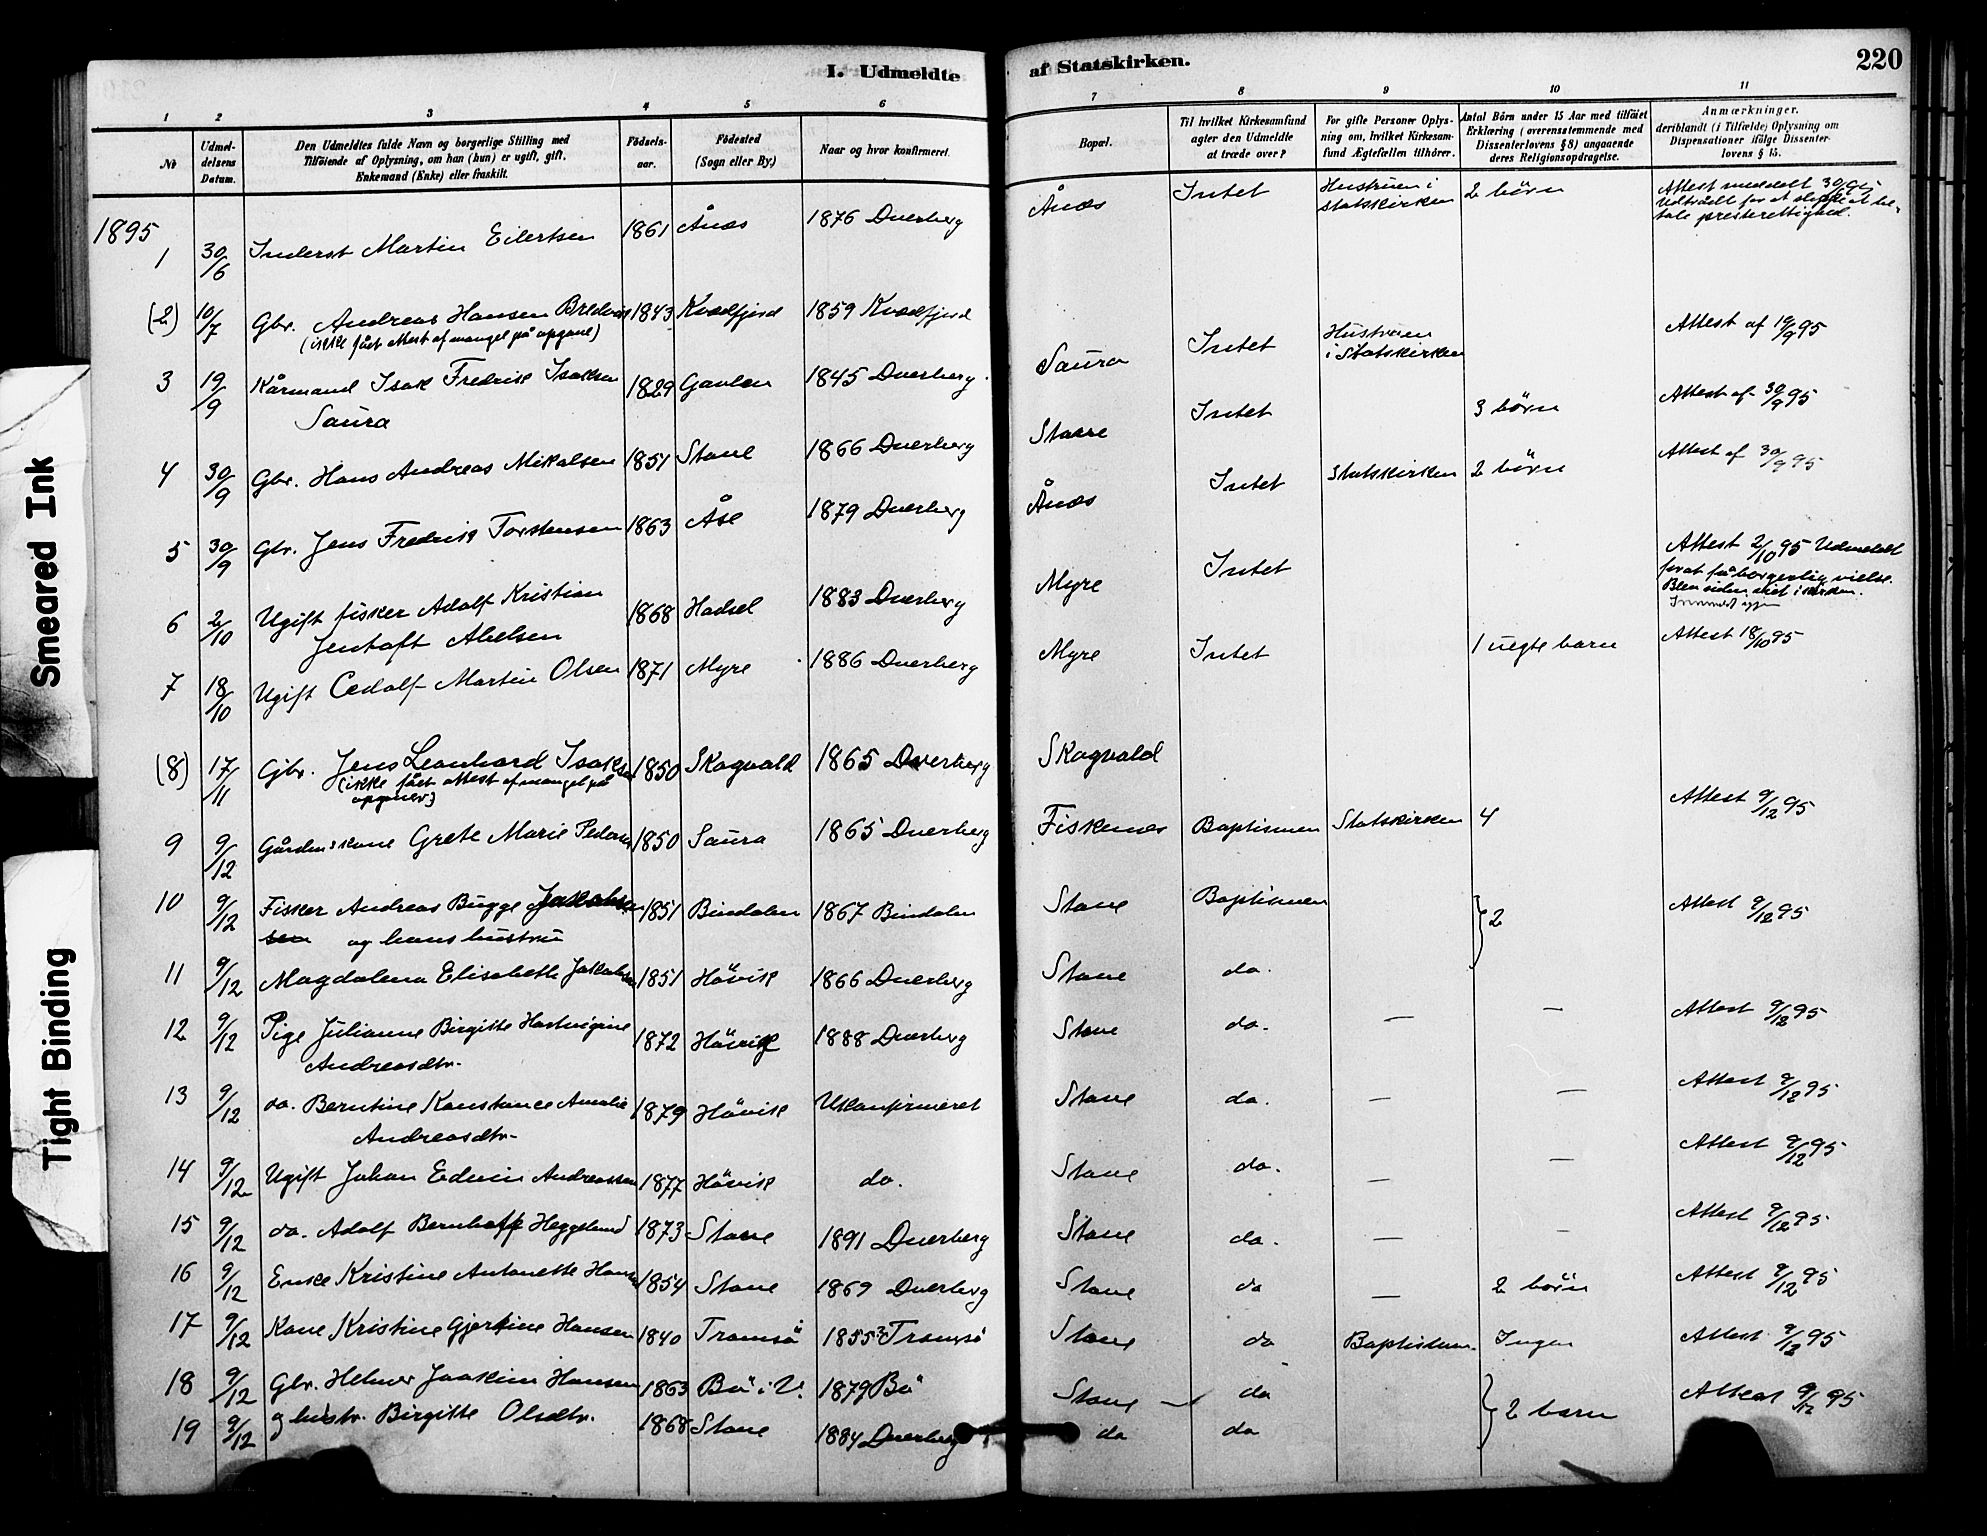 I. Udmeldte af Statskirken. 220
1 2 3 4 5 6 7 8 9 10 11
No
Udmeldelsens Datum.
Den Udmeldtes fulde Navn og borgerlige Stilling med Tilföiende af Oplysning, om han (hun) er ugift, gift, Enkemand (Enke) eller fraskilt.
Födselsaar.
Födested (Sogn eller By.)
Naar og hvor konfirmeret.
Bopæl.
Til hvilket Kirkesamfund agter den Udmeldte at træde over?
For gifte Personer Oplysning om, hvilket Kirkesamfund Ægtefællen tilhörer.
Antal Börn under 15 Aar med tilföiet Erklæring (overensstemmende med Dissenterlovens § 8) angaaende deres Religionsopdragelse.
Anmærkninger, deriblandt (i Tilfælde) Oplysning om Dispensationer ifölge Dissenterlovens § 15.
1895
1 30/6 Inderst Martin Eilertsen 1861 Ånæs 1876 Dverberg Ånæs Intet Hustruen i statskirken 2 börn Attest meddelt 30/6 95 Udtrådt for at slippe at betale presterettighed.
(2) 10/7 Gbr. Andreas Hansen 1843 Kvædfjord 1859 Kvædfjord
(ikke fået attest af mangel på opgave)
3 19/9 Kårmand Isak Fredrik Isaksen 1829 Gavlen 1845 Dverberg Saura Intet Hustruen i Statskirken Attest af 19/9 95
Saura
4 30/9 Gbr. Hans Andreas Mikalsen 1851 Stave 1866 Dverberg Stave Intet 3 börn Attest af 30/9 95
5 30/9 Gbr. Jens Fredrik Torstensen 1863 Åse 1879 Dverberg Ånæs Intet Statskirken 2 börn Attest af 30/9 95
6 2/10 Ugift fisker Adolf Kristian 1868 Hadsel 1883 Dverberg Myre Intet Attest 2/10 95 Udmeldt
Jentoft Abelsen for at få borgerlig vielse.
Blev siden viet i kirken.
7 18/10 Ugift Cedolf Martin Olsen 1871 Myre 1886 Dverberg Myre Intet 1 uegte barn Attest 18/10 95
(8) 17/11 Gbr. Jens Leonhard Isaksen 1850 Skogvold 1865 Dverberg Skogvold
(ikke fået attest af mangel på
opgaver)
9 9/12 Gårdmandskone Grete Marie Pedersen 1850 Saura 1865 Dverberg Fiskenes Baptismen Statskirken 4 Attest 9/12 95
10 9/12 Fisker Andreas Bugge Jakobsen 1851 Bindalen 1867 Bindalen Stave Baptismen } 2 Attest 9/12 95
sen og hans hustru
11 9/12 Magdalena Elisabeth Jakobsen 1851 Hövik 1866 Dverberg Stave do.
12 9/12 Pige Julianne Birgitte Hartvigine 1872 Hövik 1888 Dverberg Stave do. — — Attest 9/12 95
Andreasdtr.
13 9/12 do. Berntine Konstance Amalie 1879 Hövik Ukonfirmeret Stave do. — — Attest 9/12 95
Andreasdtr.
14 9/12 Ugift Johan Edvin Andreassen 1877 Hövik do. Stave do. — — Attest 9/12 95
15 9/12 do. Adolf Bernhoff Heggelund 1873 Stave 1891 Dverberg Stave do. — — Attest 9/12 95
16 9/12 Enke Kristine Antonette Hansen 1854 Stave 1869 Dverberg Stave do — 2 börn Attest 9/12 95
17 9/12 Kone Kristine Gjertine Hansen 1840 Tromsö 1855? Tromsö Stave do Baptismen. Ingen Attest 9/12 95
18 9/12 Gbr. Helmer Joakim Hansen 1863 Bö i V. 1879 Bö Stave do } 2 barn Attest 9/12 95
19 9/12 og hustr. Birgitte Olsdtr. 1868 Stave 1884 Dverberg do do
Smeared Ink
Tight Binding